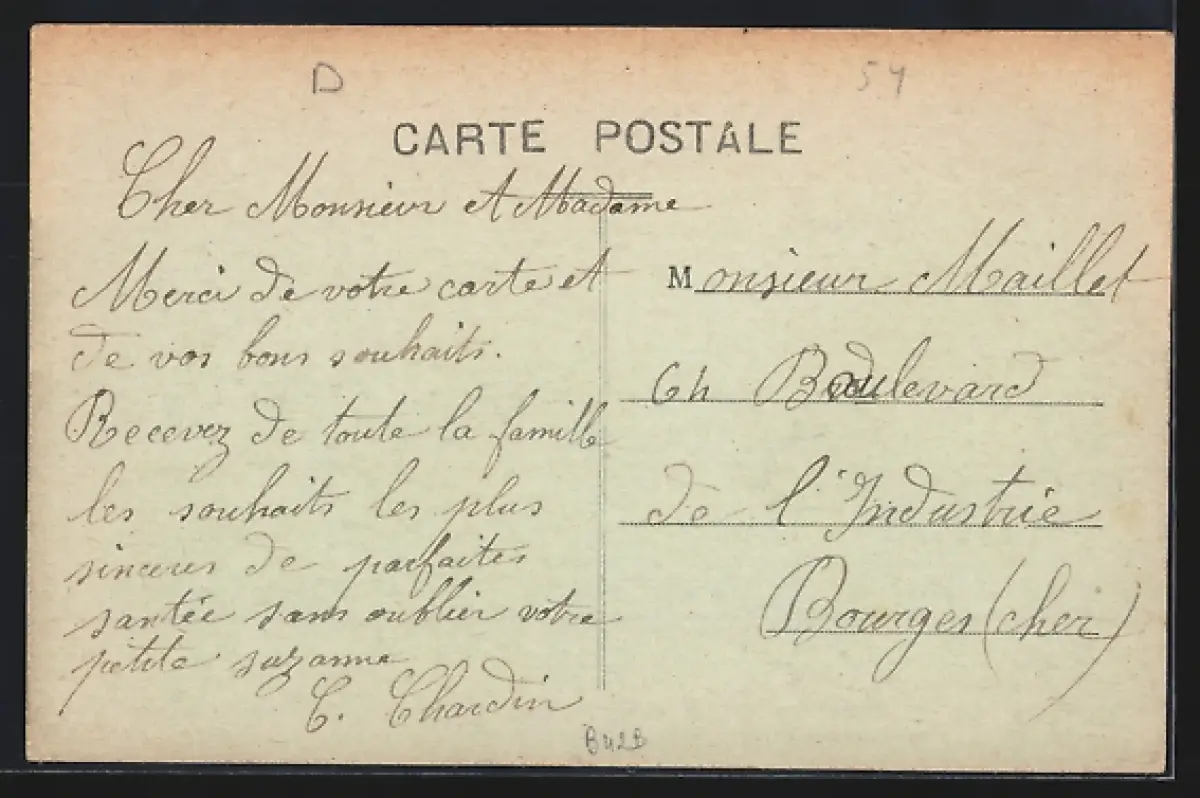 D
54
CARTE POSTALE
Cher Monsieur et Madame
Merci de votre carte et
de vos bons souhaits.
Recevez de toute la famille
les souhaits les plus
sinceres de parfaites
santée sans oublier votre
petite suzanne
C. Chardin
Monsieur Maillet
64 Boulevard
de l'Industrie
Bourges (cher)
B42B